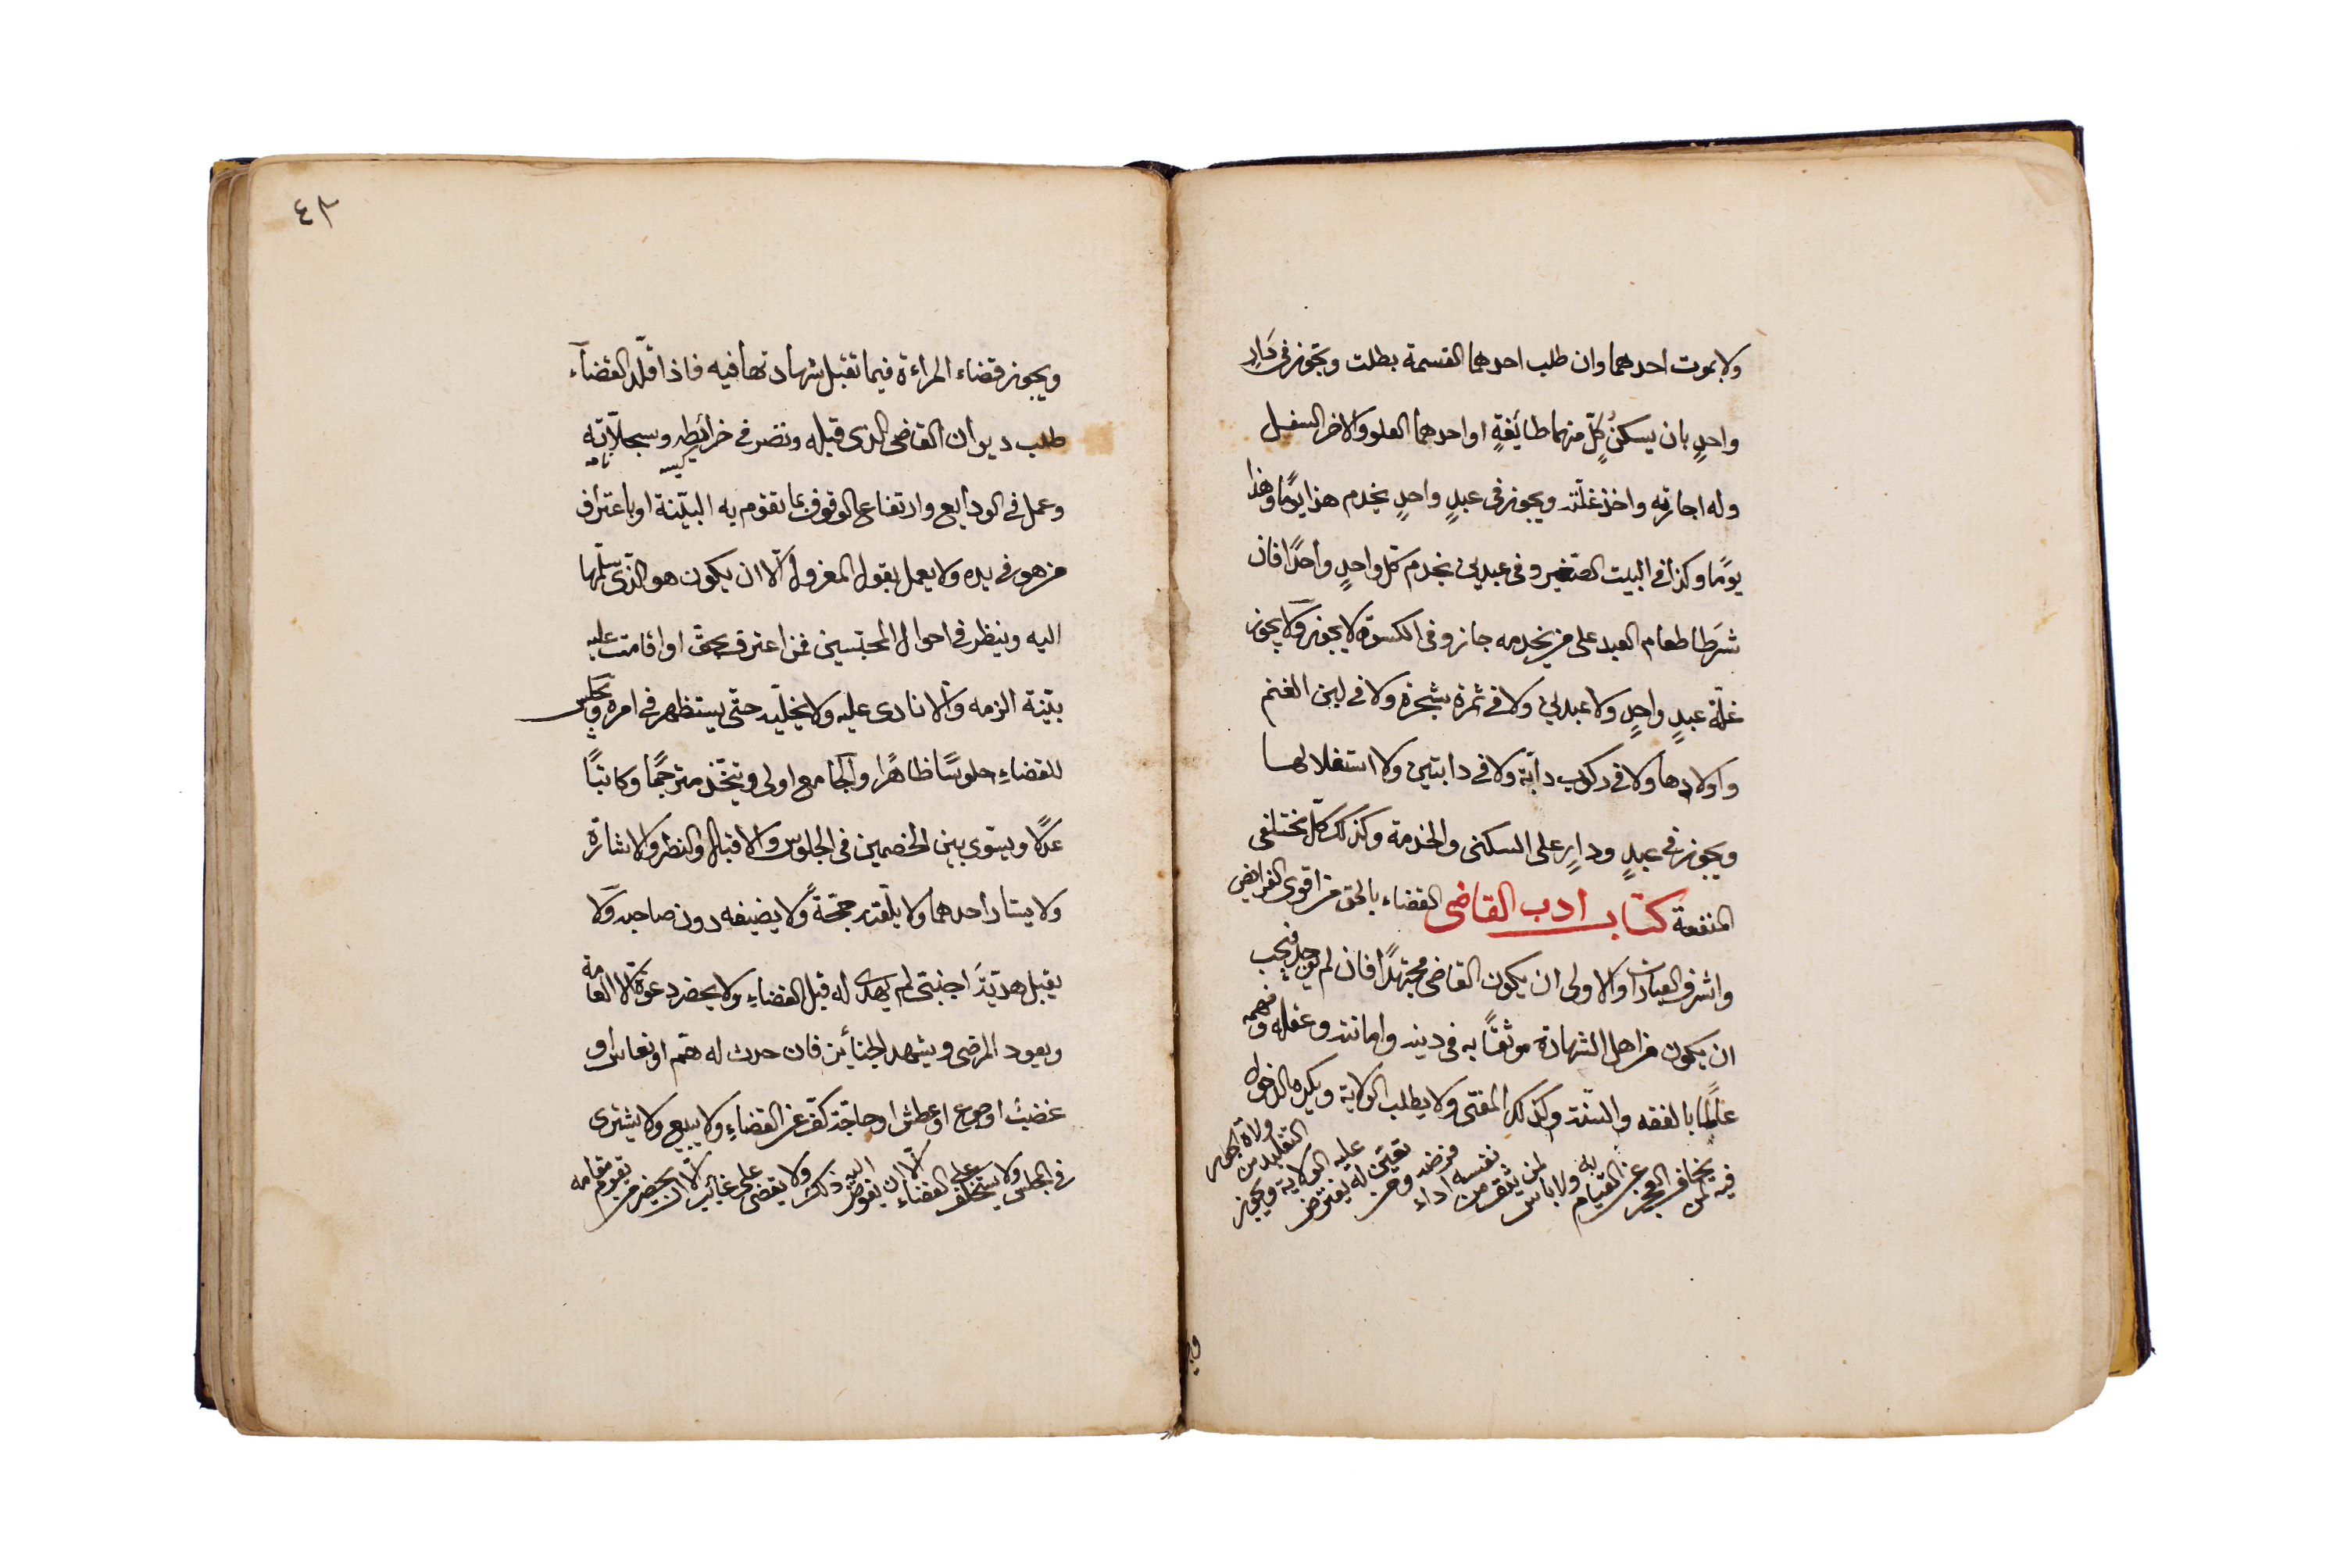 ولا بموت احدهما وان طلب احدهما القسمة بطلت وتجوز فى دَارٍ
واحدٍ بان يسكن كلّ منهما طائفةٍ او احدهما العلو والاخر السفل
وله اجارته واخذ غلّته ويجوز فى عبدٍ واحدٍ يخدم هذا يومًا وهذا
يومًا وكذا فى البيت الصّغير وفى عبدين يخدم كّل واحدٍ واحدًا فان
شَرَطا طعام العبد على من يخدمه جاز وفى الكسوة لا يجوز ولا يجوز
غلّة عبدٍ واحدٍ ولا عبدين ولا فى ثمرة شجرة ولا فى لبن الغنم
واولادها ولا فى ركوب دابّة ولا فى دابتين ولا استغلالها
ويجوز فى عبدٍ ودارٍ على السكنى والخدمة وكذلك كلّ مختلفى
المنفعة كتاب ادب القاضى القضاء بالحق من اقوى الفرايض
واشرف العبادات والاولى ان يكون القاضى مجتهدًا فان لم يوجد فيجب
ان يكون من اهل الشهادة موثقًا به فى دينه وامانته وعقله وفهمه
عالمًا بالفقه والسّنة وكذلك المفتى ولا يطلب الولاية ويكره الدخول
فيه لمن يخاف العجز عن القيام به ولا باس لمن يثق من نفسه اداء فرضه ومن تعيّن له يفترض عليه الولاية ويجوز التقليد من ولاة الجور
ويج
٤٢
ويجوز قضاء المراءة فيما تقبل شهادتها فيه فاذا قلّد القضآء
طلب ديوان القاضى الذى قبله ونضر فى خرائطه وسجلّاته
كيسه نامه
وعمل فى الودايع وارتفاع الوقوف بما تقوم به البيّنة او باعتراف
من هو فى يده ولا يعمل بقول المعزول الّا ان يكون هو الذّى سلّمها
اليه وينظر فى احوال المحبّسين فمن اعترف بحقّ او اقامت عليه
بيّنة الزمه والّا نادى عليه ولا يخليّه حتّى يستظهر فى امره ويجلس
للقضاءِ جلوسًا ظاهرًا والجامع اولى ويتّخذ مترجمًا وكاتبًا
عدلًا ويسّوى بين الخصمين فى الجلوس والاقبال والنظر والاشارة
ولا يسار احدهما ولا يلقّنه حجّةً ولا يضيفه دون صاحبه ولا
يقبل هديّة اجنبّى لم يهدى له قبل القضاءِ ولا يحضر دعوة الا العامة
ويعود المرضى ويشهد الجنائز فان حدث له همّ او نعاس او
غضب او جوع او عطش او حاجة كفّ عن القضاءِ ولا يبيع ولا يشترى
فى المجلس ولا يستخلف على القضاء الّا ان يفوض اليه ذلك ولا يقضى على غائب الّا ان يحضر من يقوم مقامه